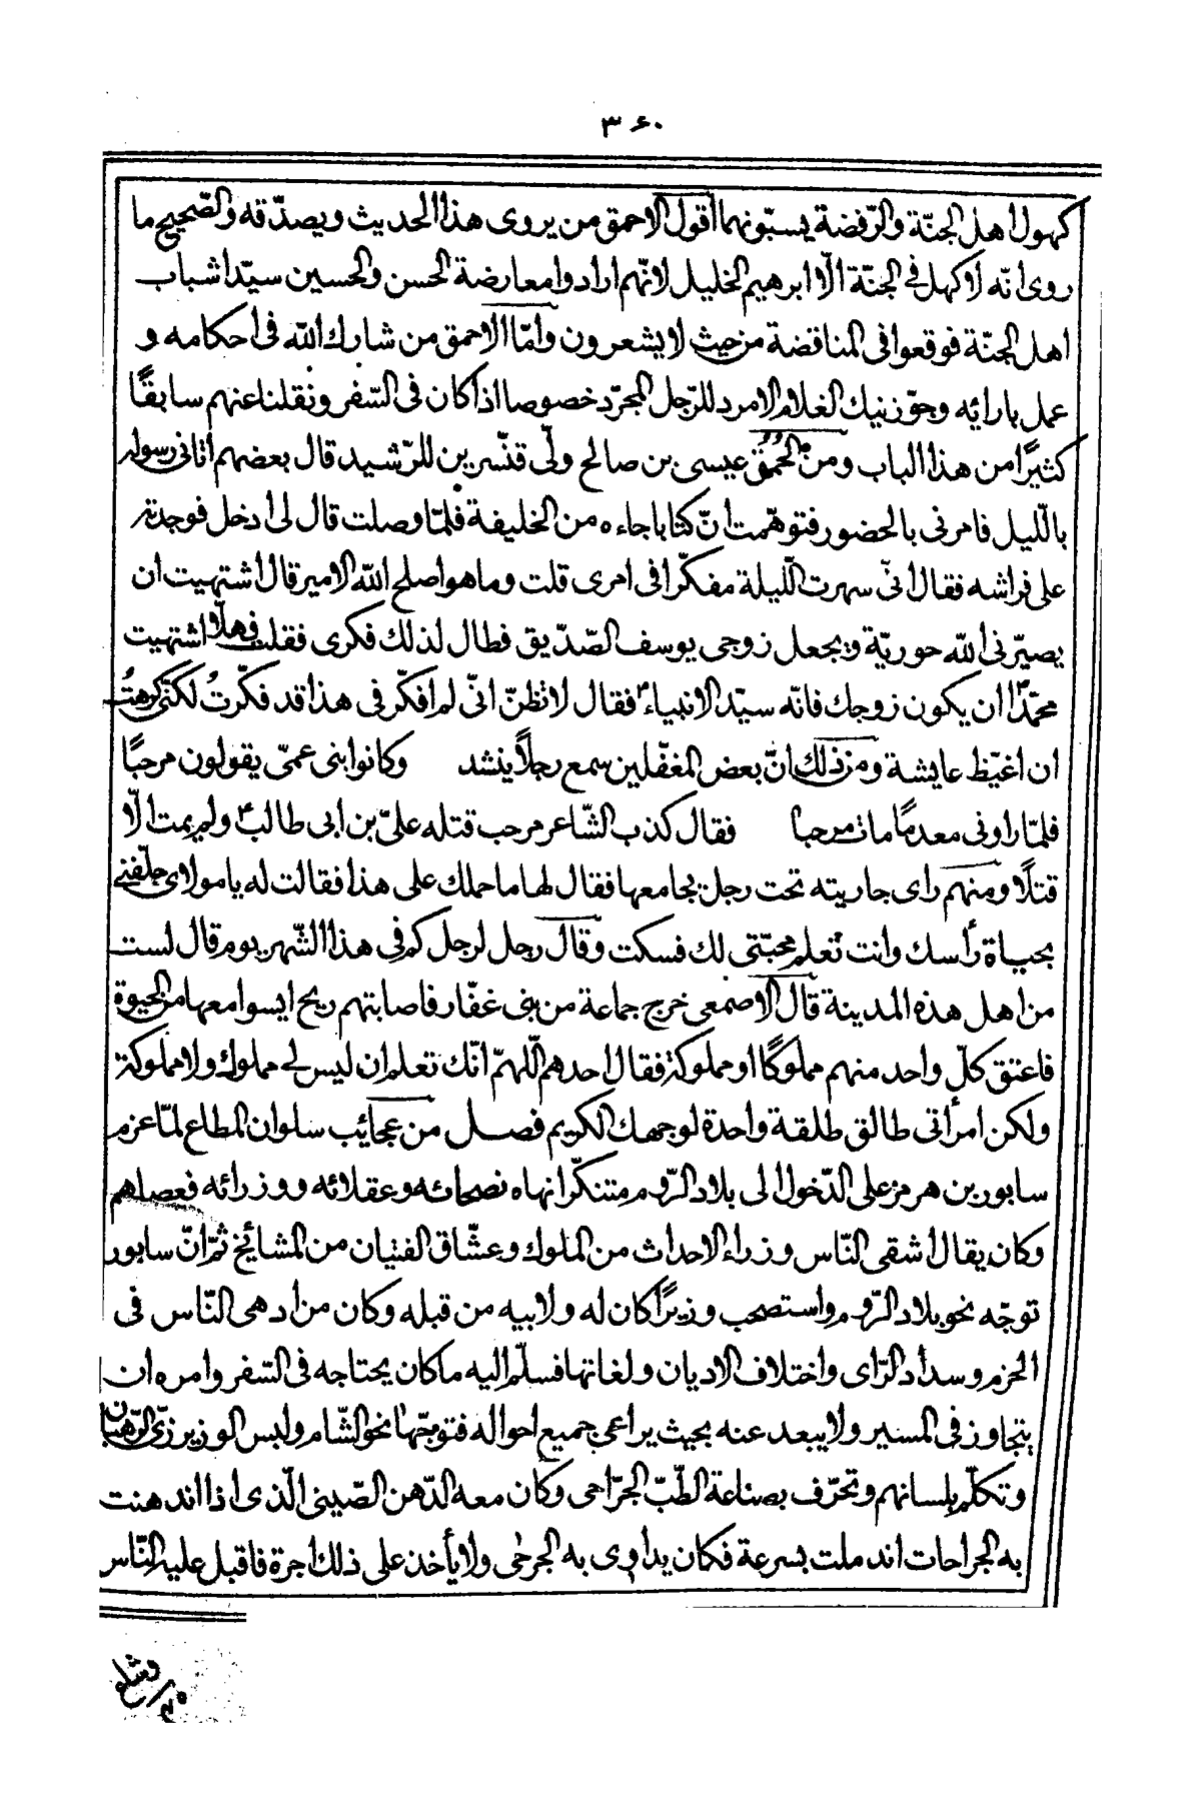 ۳۶۰
كهول أهل الجنّة والرّفضة يسبّونهما أقول الاحمق من يروى هذا الحديث ويصدّقه والصّحيح ما
روى انّه لا كهل في الجنّة الّا ابرهيم الخليل لانّهم ارادوا معارضة الحسن والحسين سيّدا شباب
اهل الجنّة فوقعوا فى المناقضة من حيث لا يشعرون وامّا الاحمق من شارك اللّه فى احكامه و
عمل بارائه وجوّز نيك الغلام الامرد للرّجل المجرّد خصوصا اذا كان فى السّفر ونقلنا عنهم سابقًا
كثيرًا من هذا الباب ومن الحُمق عيسى بن صالح ولّى قنّسرين للرّشيد قال بعضهم اتانى رسوله
باللّيل فامرنى بالحضور فتوهّمت انّ كتابا جاءه من الخليفة فلمّا وصلت قال لى ادخل فوجدته
على فراشه فقال انّى سهرت اللّيلة مفكّرا فى امرى قلت وما هو اصلح اللّه الامير قال اشتهيت ان
يصيّرنى اللّه حوريّة ويجعل زوجى يوسف الصّدّيق فطال لذلك فكرى فقلت فهلّا اشتهيت
محمّدًا ان يكون زوجك فانّه سيّد الانبياء فقال لا تظنّ انّى لم افكّر فى هذا قد فكّرتُ لكنّى كرهتُ
ان اغيّظ عايشة ومن ذلك انّ بعض المغفّلين سمع رجلًا ينشد وكانوا بنى عمّى يقولون مرحبًا
فلمّا راونى معدمًا مات مرحبا فقال كذب الشّاعر مرحب قتله علىّ بن ابى طالب ولم يمت الّا
قتلًا ومنهم راى جاريته تحت رجل يجامعها فقال لها ما حملك على هذا فقالت له يا مولاى حلّفنى
بحياة رأسك وانت تعلم محبّتى لك فسكت وقال رجل لرجل كم فى هذا الشّهر يوم قال لست
من اهل هذه المدينة قال الاصمعى خرج جماعة من بنى غفّار فاصابتهم ريح ايسوا معها من الحيوة
فاعتق كلّ واحد منهم مملوكًا او مملوكة فقال احدهم اللّهمّ انّك تعلم ان ليس لى مملوك ولا مملوكة
ولكن امرأتى طالق طلقة واحدة لوجهك الكريم فصل من عجائب سلوان المطاع لمّا عزم
سابور بن هرمز على الدّخول الى بلاد الرّوم متنكّرا نهاه نصحائه وعقلائه ووزرائه فعصاهم
وكان يقال اشقى النّاس وزراء الاحداث من الملوك وعشّاق الفتيان من المشائخ ثمّ انّ سابور
توجّه نحو بلاد الرّوم واستصحب وزيرًا كان له ولابيه من قبله وكان من ادهى النّاس فى
الحزم وسداد الرّاى واختلاف الاديان ولغاتها فسلّم اليه ما كان يحتاجه فى السّفر وامره ان
يتجاوز فى المسير ولا يبعد عنه بحيث يراعى جميع احواله فتوجّها نحو الشّام ولبس الوزير زىّ الرّهبان
وتكلّم بلسانهم وتحرّف بصناعة الطّبّ الجرّاحى وكان معه الدّهن الصّينى الّذى اذا اندهنت
به الجراحات اندملت بسرعة فكان يداوى به الجرحى ولا يأخذ على ذلك اجرة فاقبل عليه النّاس